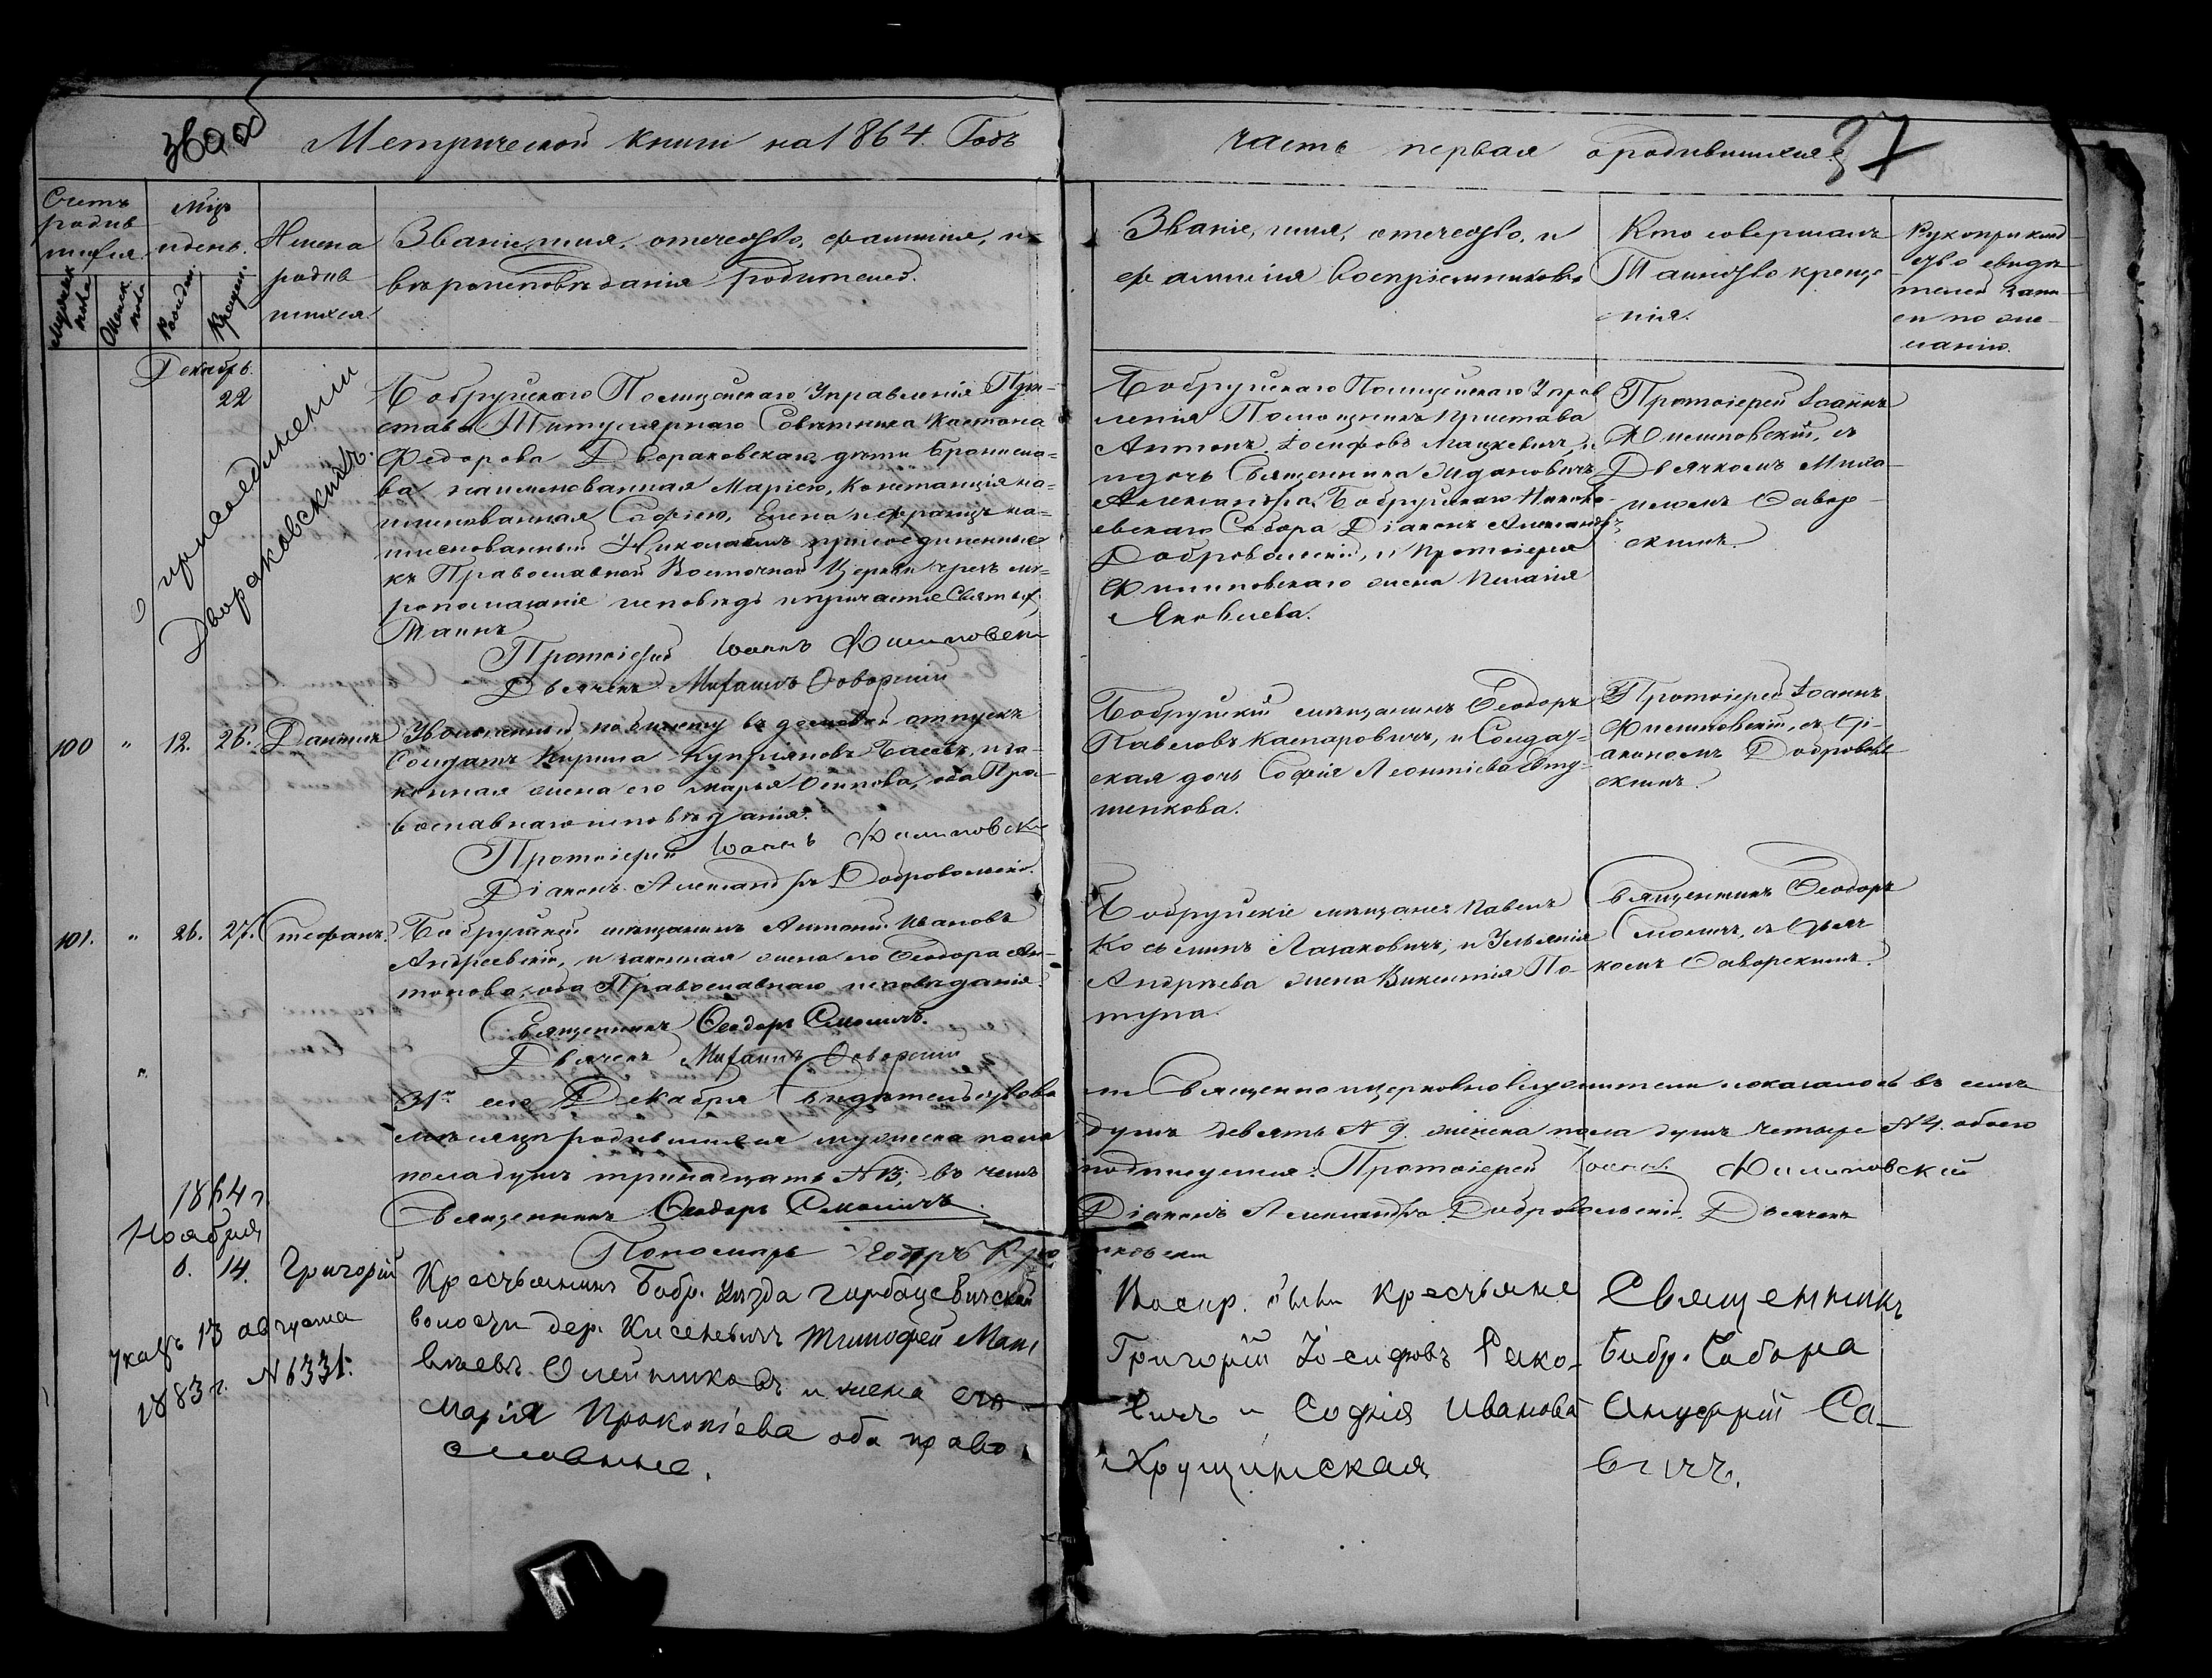 36 об
Метрической книги на 1864. Годъ
часть первая о родившихся
37
Счетъ
родив
шихся.
Мцъ
и день.
Имена
родив
шихся.
Званіе, имя, отечество, фамилія, и
вѣроисповѣданія Родителей.
Мужеска
пола
Женск.
пола
Рожден.
Крещен.
Званіе, имя, отечество, и
фамилія Воспріемниковъ
Кто совершалъ
Таинство креще
нія.
Рукоприклад
ство свидѣ
телей запи
си по же
ланію.
Декабрь.
22
О присоединеніи
Двораковскихъ.
Бобруйскаго Полицейскаго Управленія При-
става Титулярнаго Совѣтника Каетана
Федорова Двораковскаго дѣти Брониcла-
ва наименованная Маріею, Констанція на-
именованная Софіею, Елена и Францъ на-
именованный Николаемъ присоединенные
къ Православной Восточной Церкви чрезъ мѵ-
ропомазаніе исповѣдь и причастіе Святыхъ
Таинъ
Протоіерей Іоаннъ Филиповскій
Дьячекъ Михаилъ Саворскій
Бобруйскаго Полицейскаго Управ
ленія Помощникъ Пристава
Антонъ Іосифовъ Мацкевичъ, и
дочь Священника
Александра, Бобруйскаго Никола-
евскаго Собора Діаконъ Александръ
Добровольскій, и Протоіерея
Филиповскаго жена Пелагія
Яковлева.
Протоіерей Іоаннъ
Филиповскій, съ
Дьячкомъ Миха-
иломъ Савор-
скимъ.
100 " 12. 26. Даніилъ
Уволенный по билету въ домовой отпускъ
Солдатъ Кирила Куприяновъ Басевъ, и за-
конная жена его Марья Осипова, оба Пра-
вославнаго исповѣданія.
Протоіерей Іоаннъ Филиповскій
Діаконъ Александръ Добровольскій.
Бобруйскій мѣщанинъ Ѳеодоръ
Павловъ Каспаровичъ, и Солдат-
ская дочь Софія Леонтіева Евту-
шенкова.
Протоіерей Іоаннъ
Филиповскій, съ Ді-
акономъ Добровол
скимъ.
101. " 26. 27. Стефанъ.
Бобруйскій мѣщанинъ Антоній Ивановъ
Андреевскій, и законная жена его Ѳеодора Ан-
тонова, оба Православнаго исповѣданія.
Священникъ Ѳеодоръ Смоличъ.
Дьячекъ Михаилъ Саворскій
Бобруйскіе мѣщане Павелъ
Косьминъ Лазаковичъ, и Ульянія
Андрѣева жена Викентія По-
тупа.
Священникъ Ѳеодоръ
Смоличъ, съ Дьяч
комъ Саворскимъ.
31го сего Декабря Свидѣтельствова
ли Священно и церковно служители оказалось въ семъ
мѣсяцѣ родившихся мужеска пола
душъ девять № 9. женска пола душъ четыре № 4. обоего
пола душъ тринадцать № 13; въ чемъ
подписуемся: Протоіерей Іоаннъ Филиповскій
Священникъ Ѳеодоръ Смоличъ.
Діаконъ Александръ Добровольскій. Дьячекъ
Пономарь Ѳеодоръ
1864 г.
Ноября
8. 14. Григорій
Указъ 13 августа
1883 г. № 6331.
Крестьянинъ Бобр. Уѣзда Горбацевичской
волости дер. Киселевичъ Тимофей Мат
вѣевъ Олейниковъ и жена его
Марія Прокопіева оба право
славные.
Воспр. были крестьяне
Григорій Іосифовъ Рако-
вичъ и Софія Иванова
Хрущинская
Священникъ
Бобр. Собора
Онуфрій Са-
вичъ.